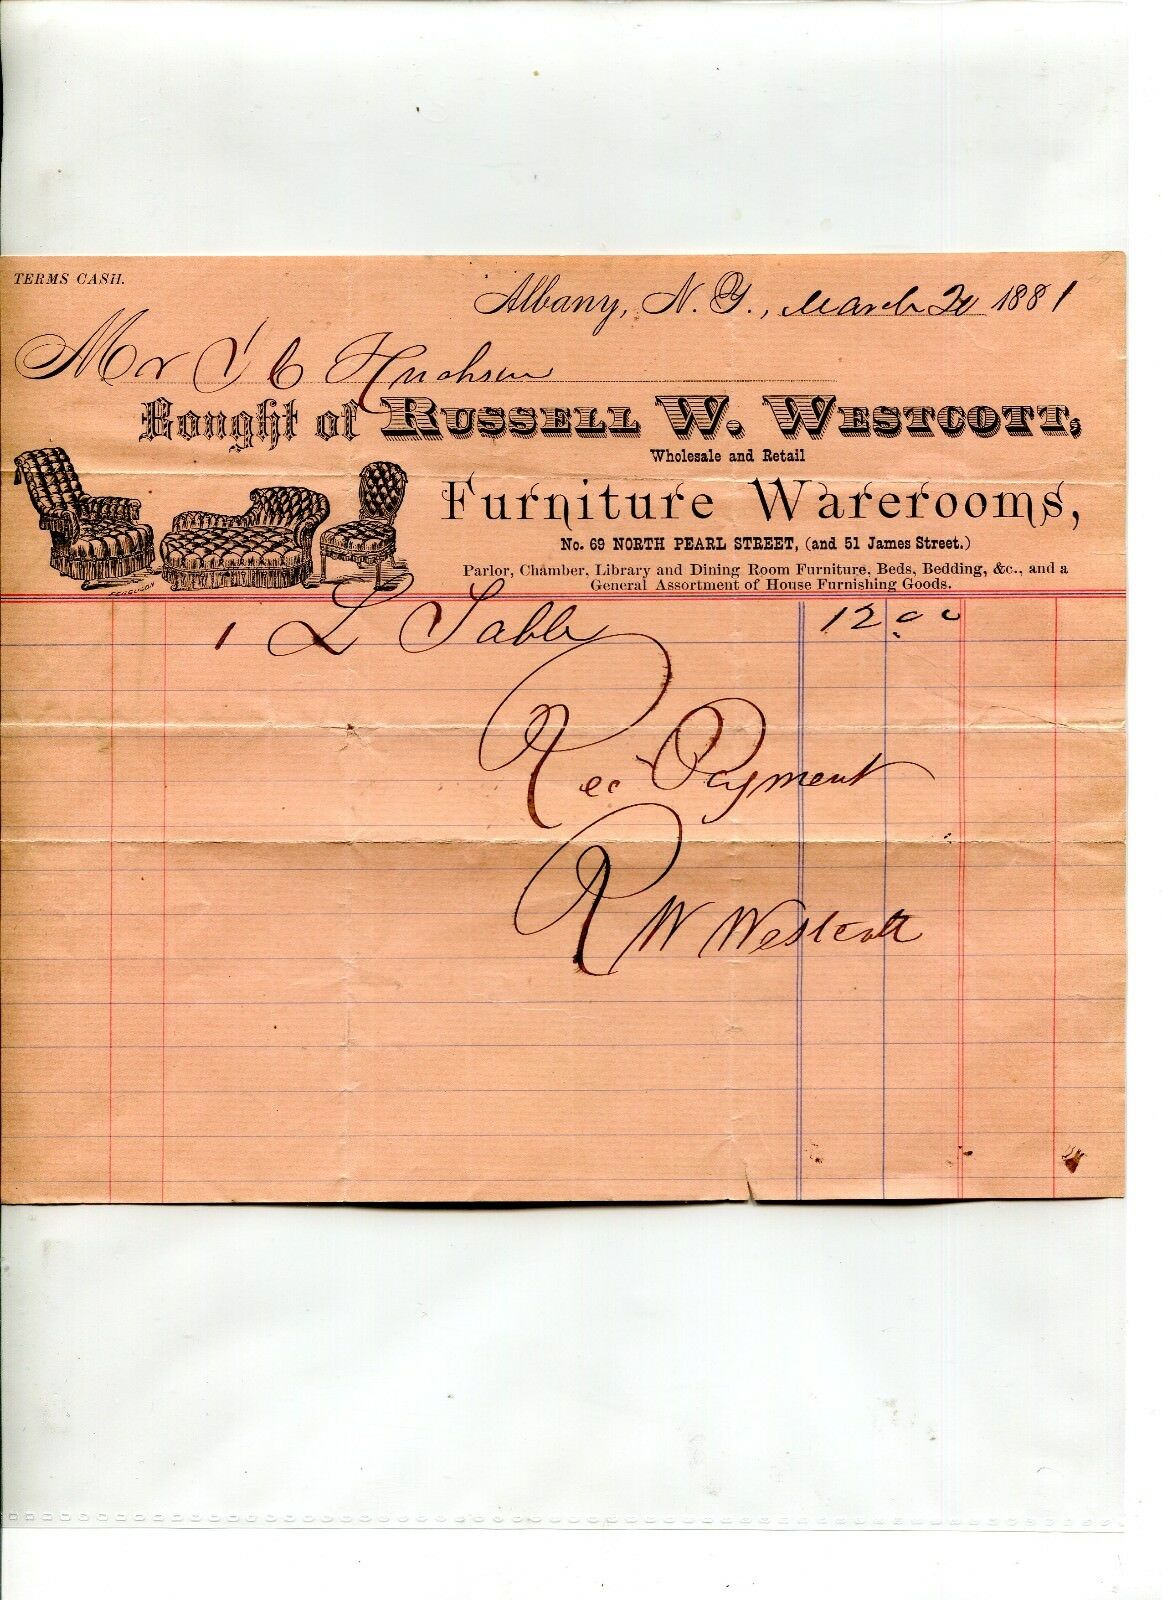 TERMS CASH.
Albany, N. Y., March 20 1881
Mr
Bought of RUSSELL W. WESTCOTT,
Wholesale and Retail
Furniture Warerooms,
No. 69 NORTH PEARL STREET, (and 51 James Street.)
Parlor, Chamber, Library and Dining Room Furniture, Beds, Bedding, &c., and a
General Assortment of House Furnishing Goods.
FERGUSON
1 L Table 12.00
Rec Payment
R W Westcott